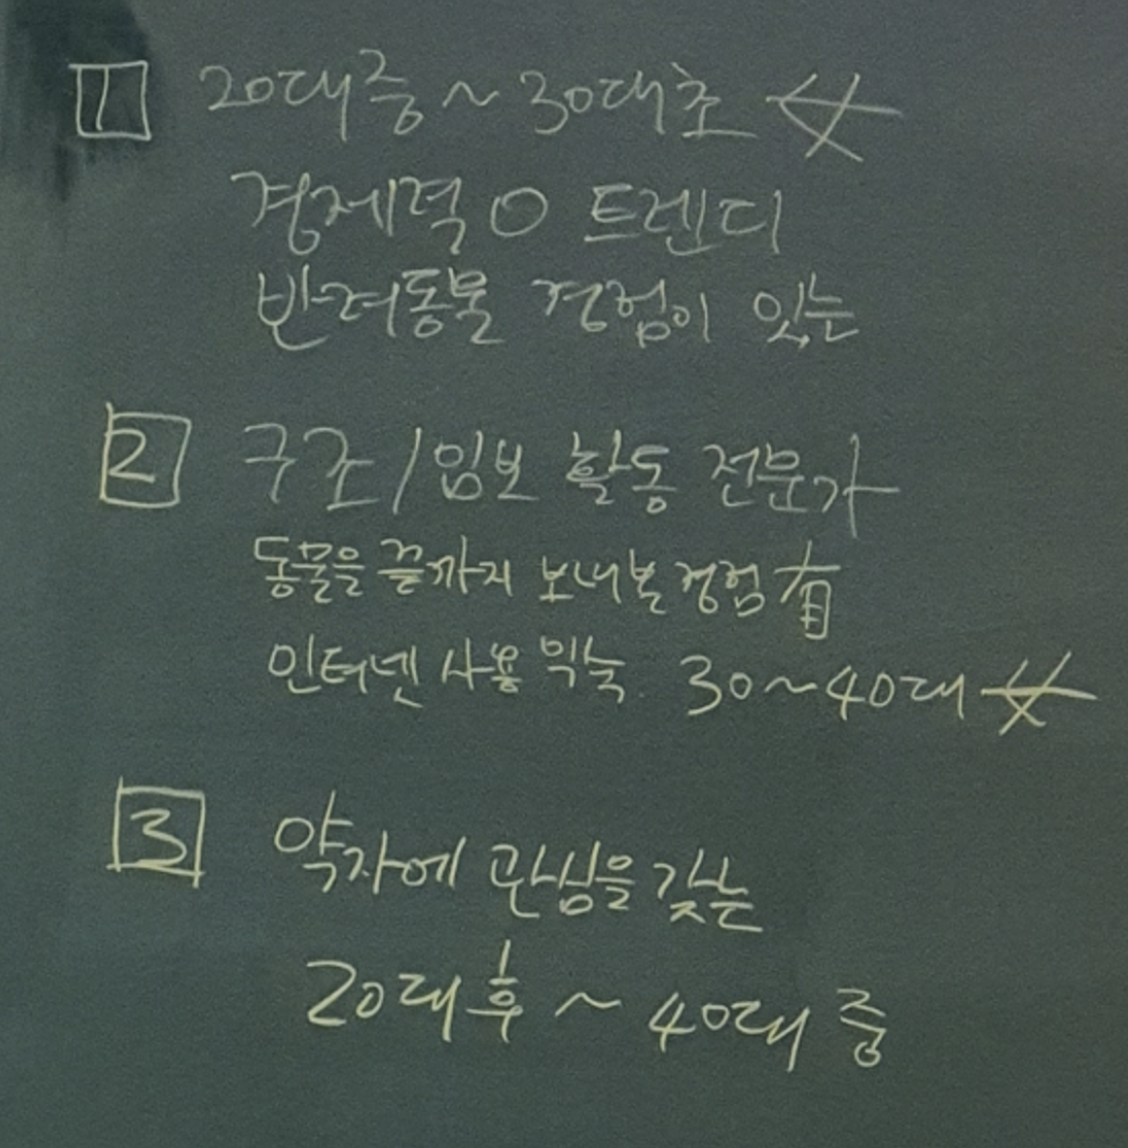 1 20대중 ~ 30대초 女
경제적 O 트렌디
반려동물 경험이 있는
2 구조 / 임보 활동 전문가
동물을 끝까지 보내본 경험 有
인터넷 사용 익숙. 30~40대 女
3 약자에 관심을 갖는
20대 후 ~ 40대 중